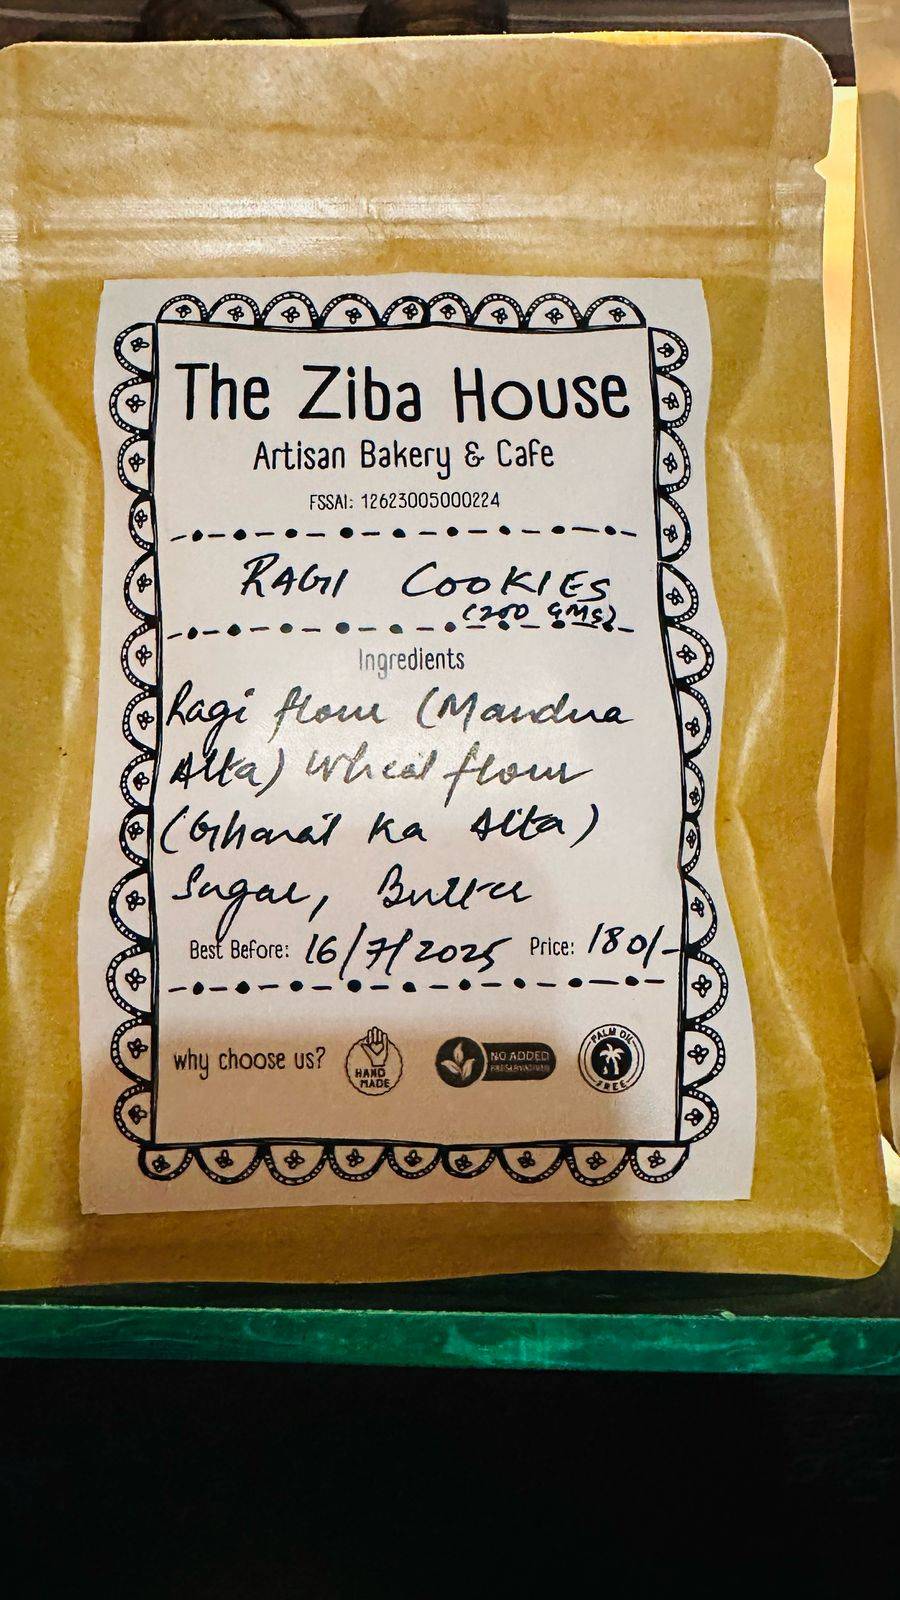 The Ziba House
Artisan Bakery & Cafe
FSSAI: 12623005000224
RAGI COOKIES
(200 GMS)
Ingredients
Ragi flour (Mandua
Atta) Wheat flour
(Gharat ka Atta)
Sugar, Butter
Best Before: 16/7/2025 Price: 180/-
why choose us?
HAND
MADE
NO ADDED
PRESERVATIVES
PALM OIL
FREE